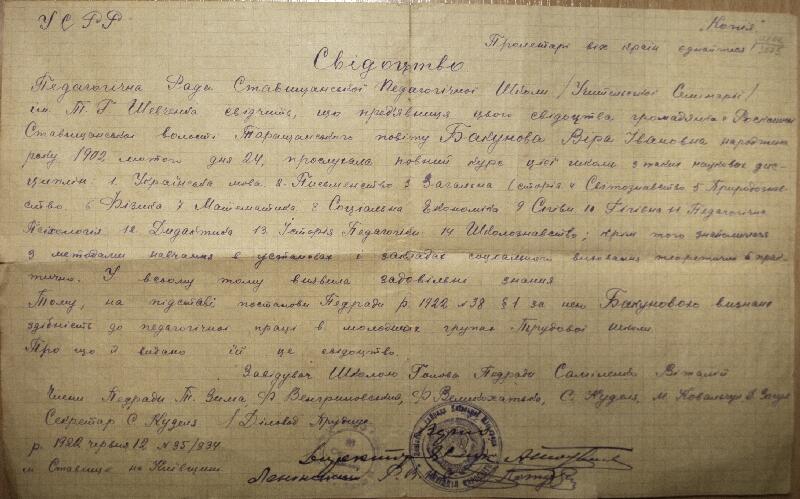 У С Р Р
"Копія"
Пролетарі всіх країн єднайтеся!
Свідоцтво
Педагогічна Рада Ставищанської Педагогічної Школи /Учительської Семінарії/
ім. Т. Г. Шевченка свідчить, що предявниця цього свідоцтва громадянка с. Розкішни
Ставищанської волости Таращанського повіту Бакунова Віра Івановна народжена
року 1902 лютого дня 24, прослухала повний курс цієї школи з таких наукових дис-
циплін: 1. Українська мова 2. Письменство 3 Загальна Історія 4 Світознавство 5 Природозна-
вство 6 Фізика 7 Математика 8 Соціальна Економіка 9 Співи 10 Гігієна 11 Педагогічна
Психологія 12 Дидактика 13 Історія Педагогіки 14 Школознавство; крім того знайомилася
з методами навчання в установах і закладах соціального виховання теоретично й прак-
тично. У всьому тому виявила задовільні знання
Тому, на підставі постанови Педради р. 1922 №38 § 1 за нею Бакуновою визнано
здібність до педагогічної праці в молодших групах Трудової школи.
Про що й видано їй це свідоцтво.
Завідувач Школою Голова Педради Самійленко Віталій
Члени Педради Т. Зима, Ф Венгриновський, Ф Великохатько, С. Кудєля, М. Ковальчук
Секретар С Кудєля /Діловод
р. 1922 червня 12 №35/334
м Ставище на Київщині
Директор